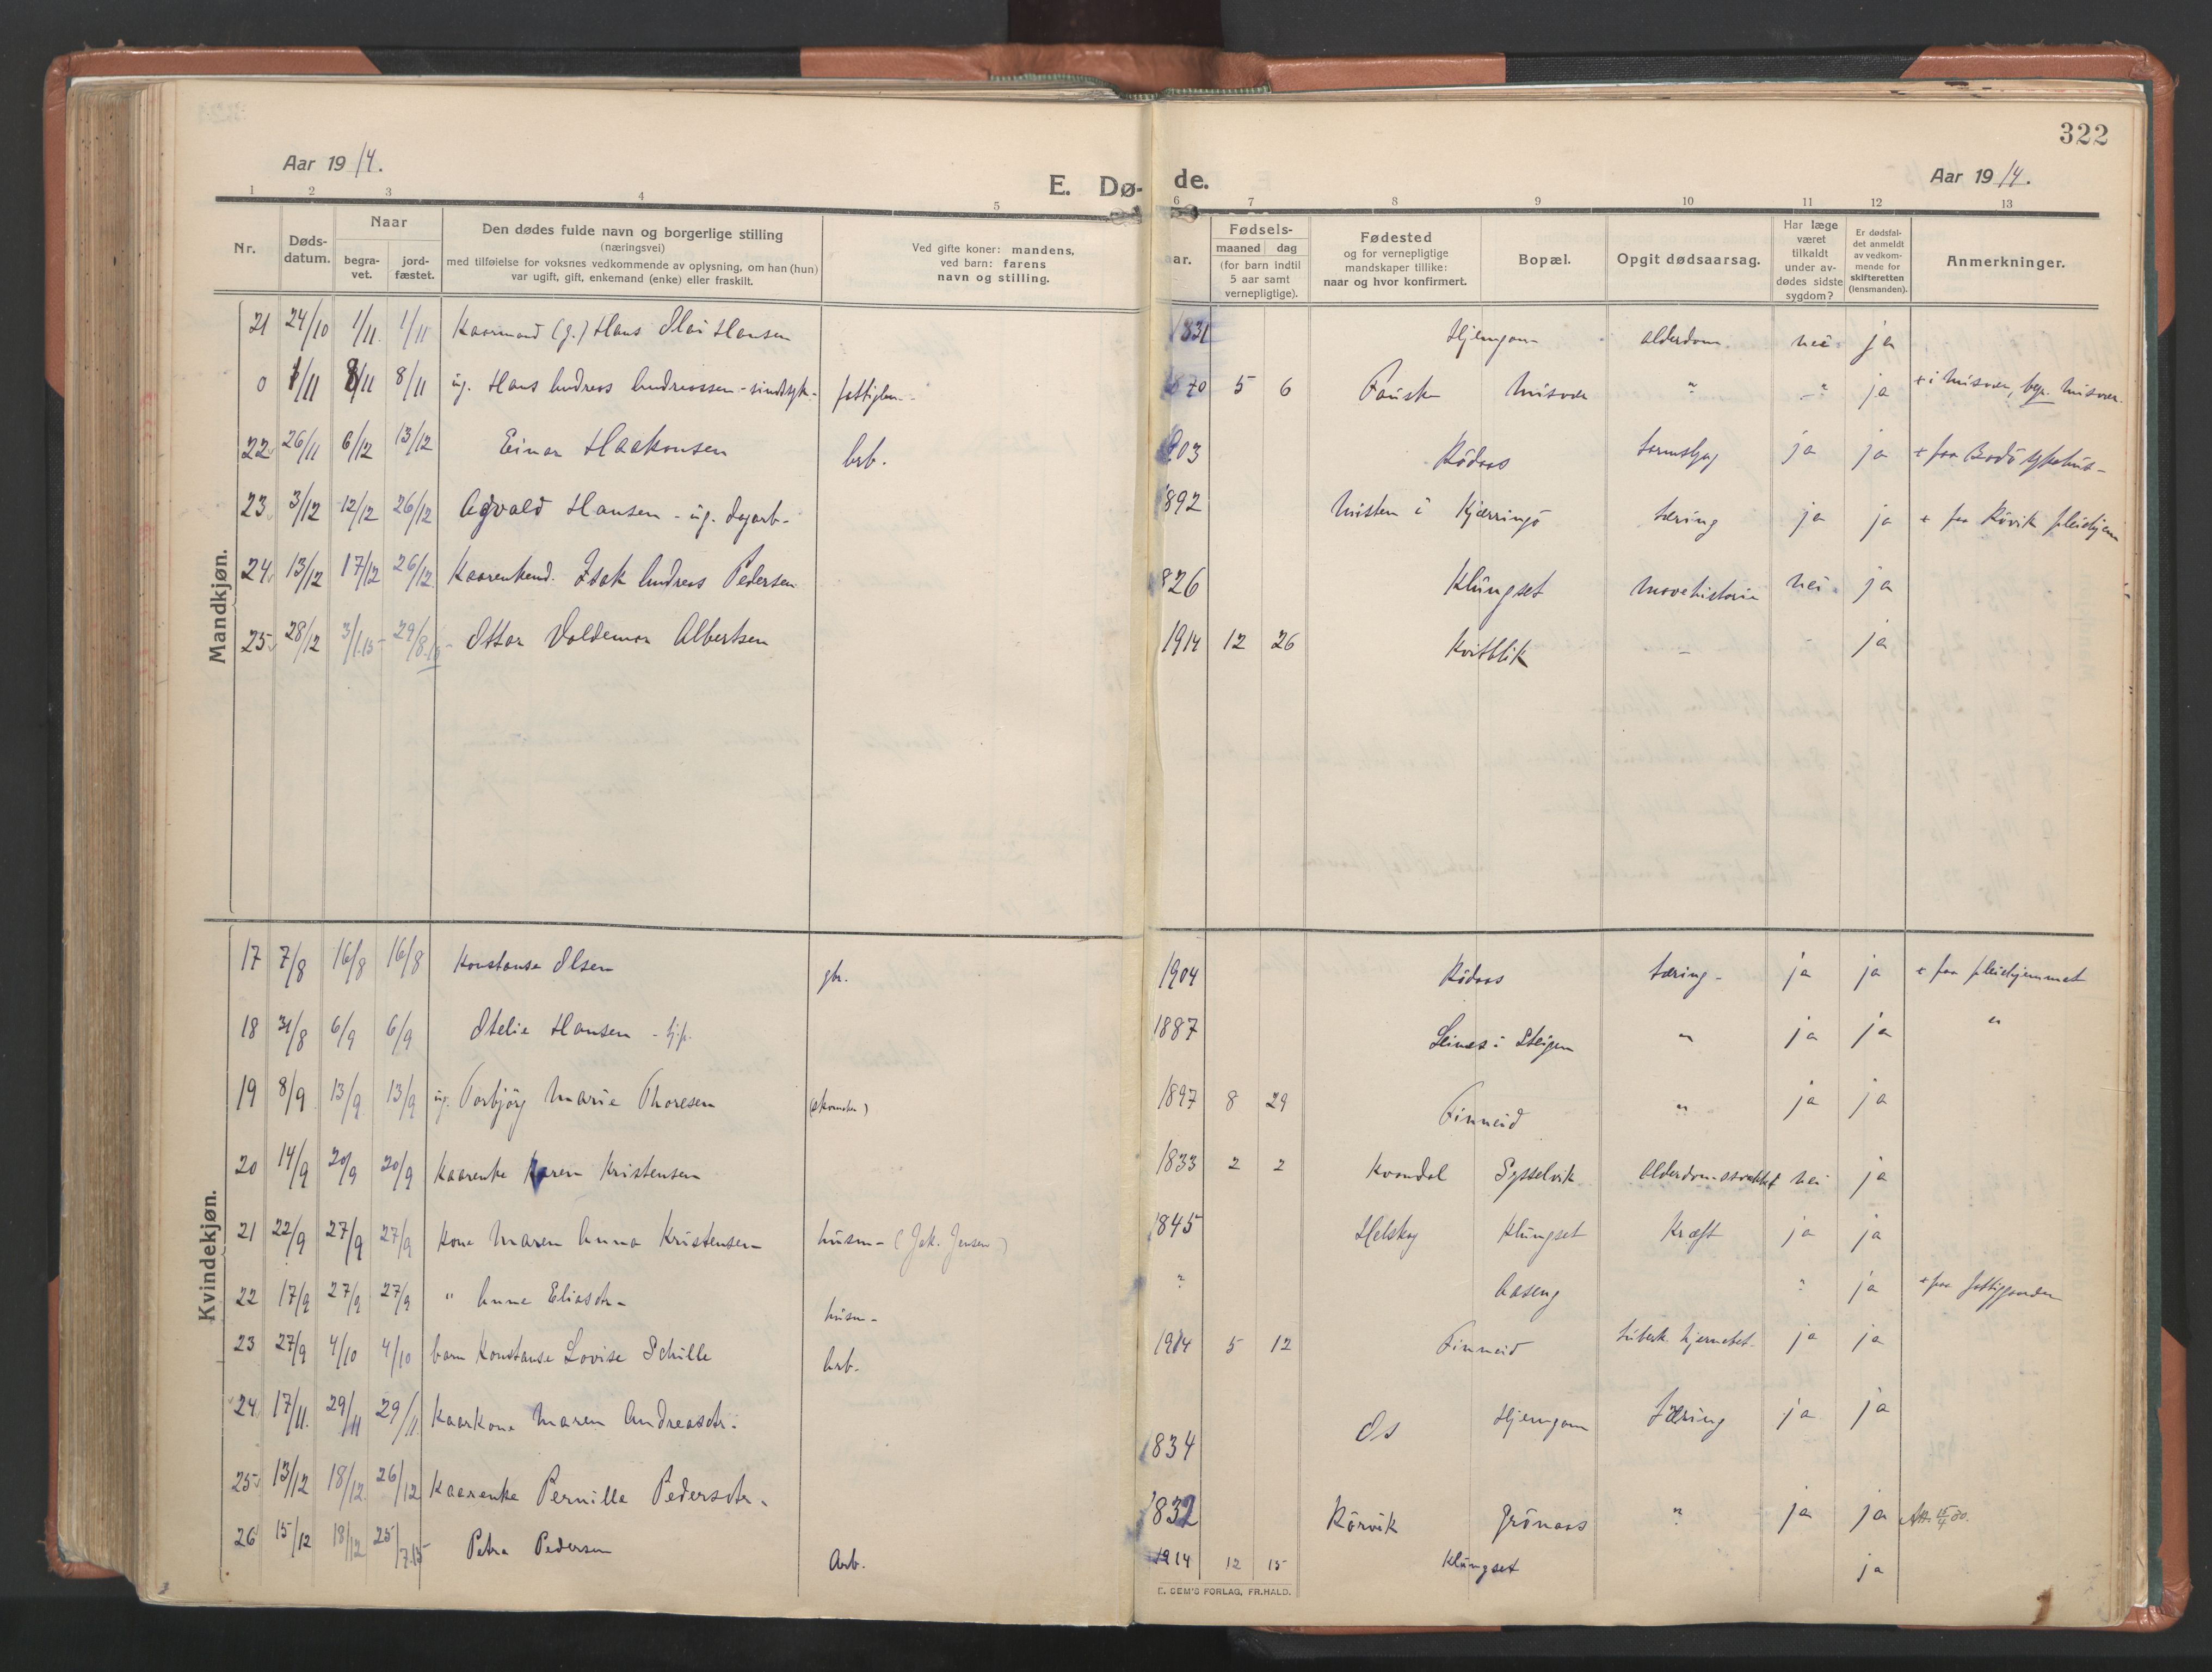 322
Aar 1914.
E. Døde.
Aar 1914.
1 2 3 4 5 6 7 8 9 10 11 12 13
Nr.
Døds-
datum.
Naar
begra-
vet.
jord-
fæstet.
Den dødes fulde navn og borgerlige stilling
(næringsvei)
med tilføielse for voksnes vedkommende av oplysning, om han (hun)
var ugift, gift, enkemand (enke) eller fraskilt.
Ved gifte koner: mandens,
ved barn: farens
navn og stilling.
ar.
Fødsels-
maaned dag
(for barn indtil
5 aar samt
vernepligtige).
Fødested
og for vernepligtige
mandskaper tillike:
naar og hvor konfirmert.
Bopæl.
Opgit dødsaarsag.
Har læge
været
tilkaldt
under av-
dødes sidste
sygdom?
Er dødsfal-
det anmeldt
av vedkom-
mende for
skifteretten
(lensmanden).
Anmerkninger.
Mandkjøn.
21 24/10 1/11. 1/11 Kaarmand (g.) Hans Olai Hansen 1831 Hjemgam alderdom nei ja
0 1/11 8/11 8/11 ug. Hans Andreas Andreassen - sindssyk - fattiglem - 1870 5 6 Fauske Misvær " " ja + i Misvær, begr. Misvær.
22 26/11 6/12 13/12 Einar Haakonsen Arb. 1903 Rödaas ja ja + paa Bodö sykehus -
23 3/12 12/12 26/12 Agvald Hansen - ug. dagarb - 1892 Misten i Kjærringö tæring ja ja + paa Rövik pleiehjem
24 13/12 17/12 26/12 Kaarenkem. Isak Andreas Pedersen 1826 Klungset nei ja
25 28/12 3/1.15 29/8.15 Ottar Valdemar Albertsen 1914 12 26 Kvitblik - ja
Kvindekjøn.
17 7/8 16/8 16/8 Konstanse Olsen gbr. 1904 Rödaas tæring - ja ja + paa pleiehjemmet
18 31/8 6/9 6/9 Otelie Hansen - tjp. 1887 Leines i Steigen " ja ja "
19 8/9 13/9 13/9 ug. Torbjörg Marie Thoresen (skomaker) 1897 8 29 Finneid " ja ja
20 14/9 20/9 20/9 Kaarenke Karen Kristensen 1833 2 2 Kvandal Sysselvik Alderdomssvakhet nei ja
21 22/9 27/9 27/9 kone Maren Anna Kristensen husm - (Jak. Jensen) 1845 Helskog Klungset Kræft ja ja
22 17/9 27/9 27/9 " Anna Eliasdtr - husm - ? Aaseng ? ja + paa fattiggaarden
23 27/9 4/10 4/10 barn Konstanse Lovise Schille Arb. 1914 5 12 Finneid tuberk. hjernebet. ja ja
24 17/11. 29/11 29/11 Kaarkone Maren Andreasdtr. 1834 Os Hjemgam tæring ja ja
25 13/12 18/12 26/12 Kaarenke Pernilla Pedersdtr. 1832 Rörvik Grönaas " ja ja Att. 15/4 30.
26 15/12 18/12 25/7.15 Petra Pedersen Arb. 1914 12 15 Klungset ja
E. SEM'S FORLAG, FR.HALD.